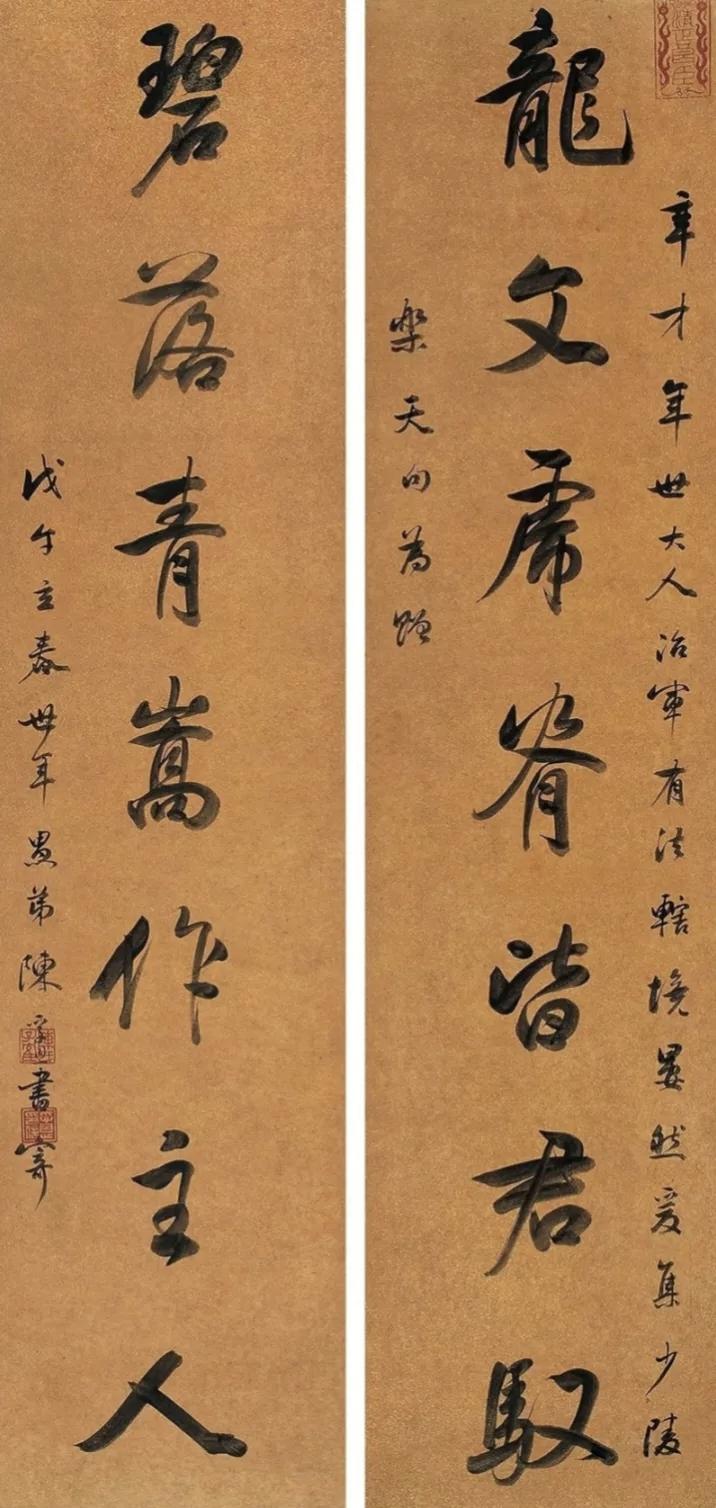 辛才年世大人治軍有法轄境晏然爰集少陵
龍文虎脊皆君馭
樂天句為贈
碧落青嵩作主人
戊午立春世年愚弟陳孚恩書寄